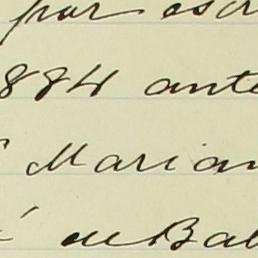 por escr
884 ante
Marian
de Bal